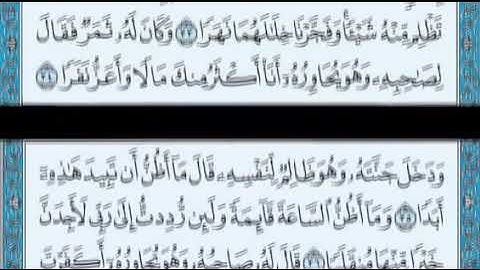 تَظْلِم مِّنْهُ شَيْـًٔا وَفَجَّرْنَا خِلَـٰلَهُمَا نَهَرًا ٣٣ وَكَانَ لَهُۥ ثَمَرٌ فَقَالَ
لِصَـٰحِبِهِۦ وَهُوَ يُحَاوِرُهُۥٓ أَنَا۠ أَكْثَرُ مِنكَ مَالًا وَأَعَزُّ نَفَرًا ٣٤
وَدَخَلَ جَنَّتَهُۥ وَهُوَ ظَالِمٌ لِّنَفْسِهِۦ قَالَ مَآ أَظُنُّ أَن تَبِيدَ هَـٰذِهِۦٓ
أَبَدًا ٣٥ وَمَآ أَظُنُّ ٱلسَّاعَةَ قَآئِمَةً وَلَئِن رُّدِدتُّ إِلَىٰ رَبِّى لَأَجِدَنَّ
خَيْرًا مِّنْهَا مُنقَلَبًا ٣٦ قَالَ لَهُۥ صَاحِبُهُۥ وَهُوَ يُحَاوِرُهُۥٓ أَكَفَرْتَ